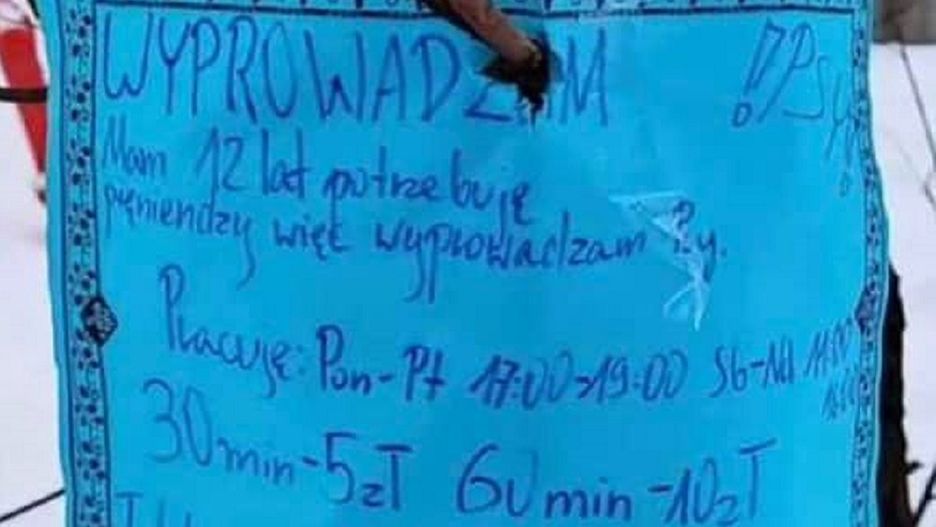 WYPROWADZAM !?Psy!
Mam 12 lat potrzebuję
pięniendzy więt wyprowadzam Psy.
Pracuję: Pon-Pt 17:00>19:00 Sb-Nd 11:00
30min-5zł 60min-10zł